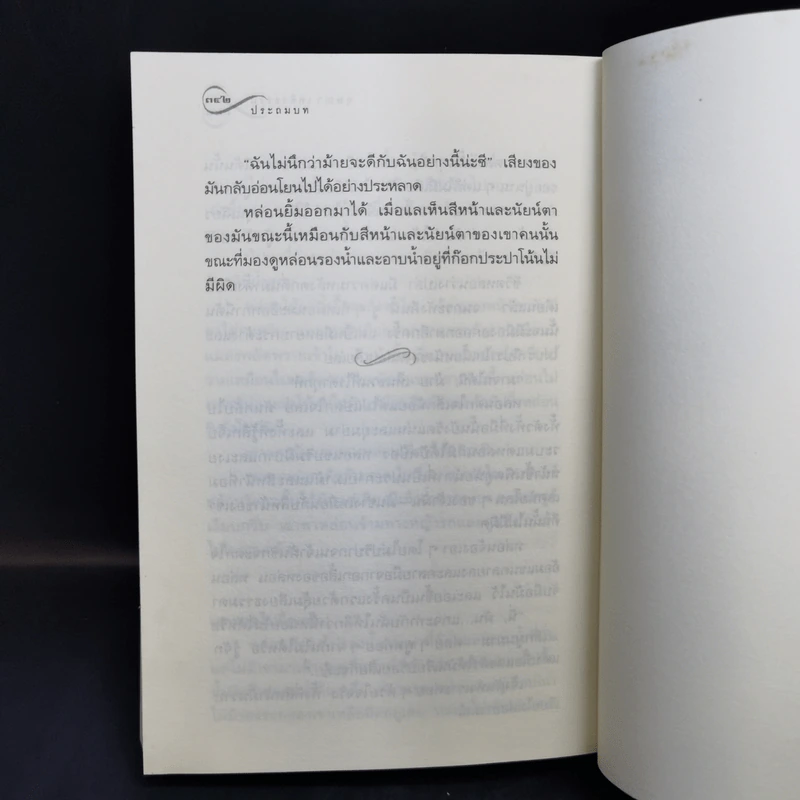 ๓๔๒
ประถมบท
“ฉันไม่นึกว่าม้ายจะดีกับฉันอย่างนี้น่ะซี” เสียงของ
มันกลับอ่อนโยนไปได้อย่างประหลาด
หล่อนยิ้มออกมาได้ เมื่อแลเห็นสีหน้าและนัยน์ตา
ของมันขณะนี้เหมือนกับสีหน้าและนัยน์ตาของเขาคนนั้น
ขณะที่มองดูหล่อนรองน้ำและอาบน้ำอยู่ที่ก๊อกประปาโน้นไม่
มีผิด